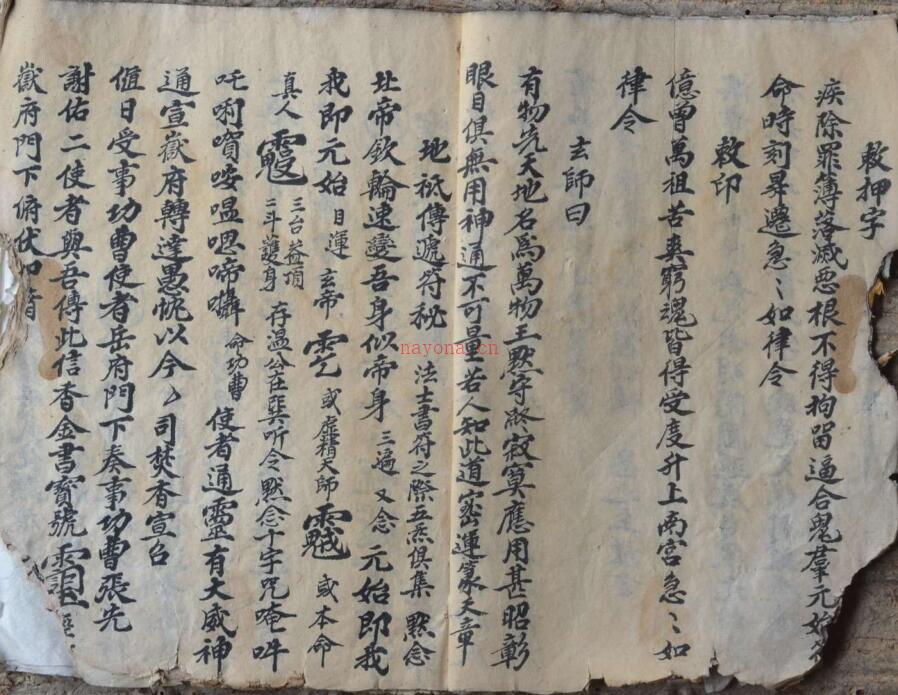 敕押字
疾除罪簿落滅惡根不得拘留逼合鬼羣元始符
命時刻昇遷急〻如律令
敕印
億曾萬祖苦爽窮魂皆得受度升上南宮急〻如
律令
玄師曰
有物先天地名為萬物王黙守終寂寞應用甚昭彰
眼目俱無用神通不可量若人知此道密運篆天章
地祇傳遞符秘 法士書符之際五炁俱集 黙念
北帝欽輪速變吾身似帝身 三遍 又念 元始即我
我即元始 目運 玄帝 或虛靖天師 或本命
真人 三台蓋頂 二斗護身 存溫公在巽听令黙念十字咒唵吽
吒唎 嗢 啼囁 命功曹 使者通靈有大威神
通宣嶽府轉達愚悃以今〻司焚香宣召
值日受事功曹使者岳府門下奏事功曹張先
謝佑二使者與吾傳此信香金書寶號
嶽府門下俯伏
nayona.cn